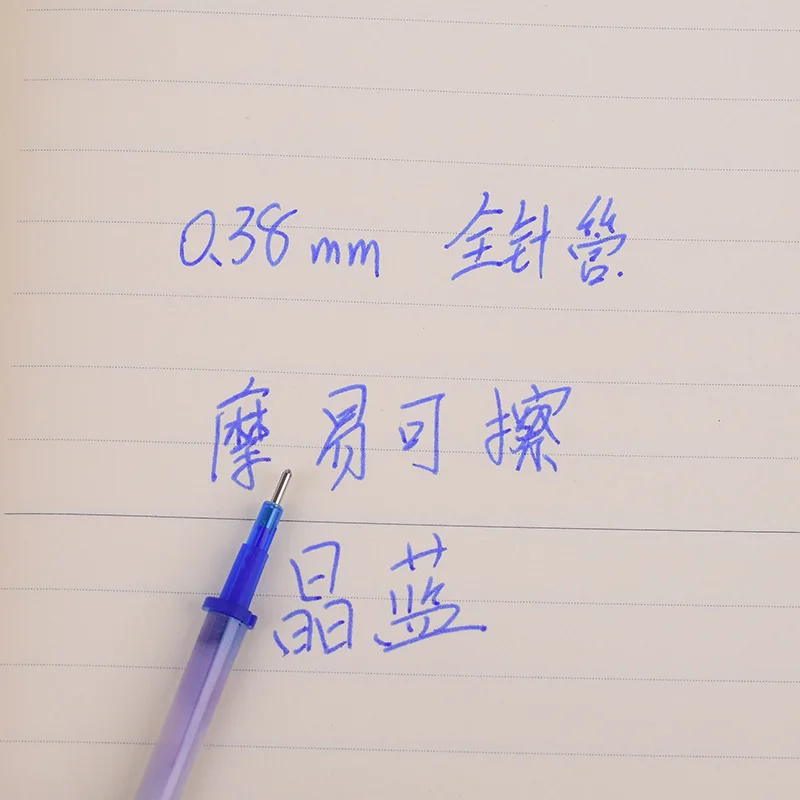 0.38mm 全针管
摩易可擦
晶蓝